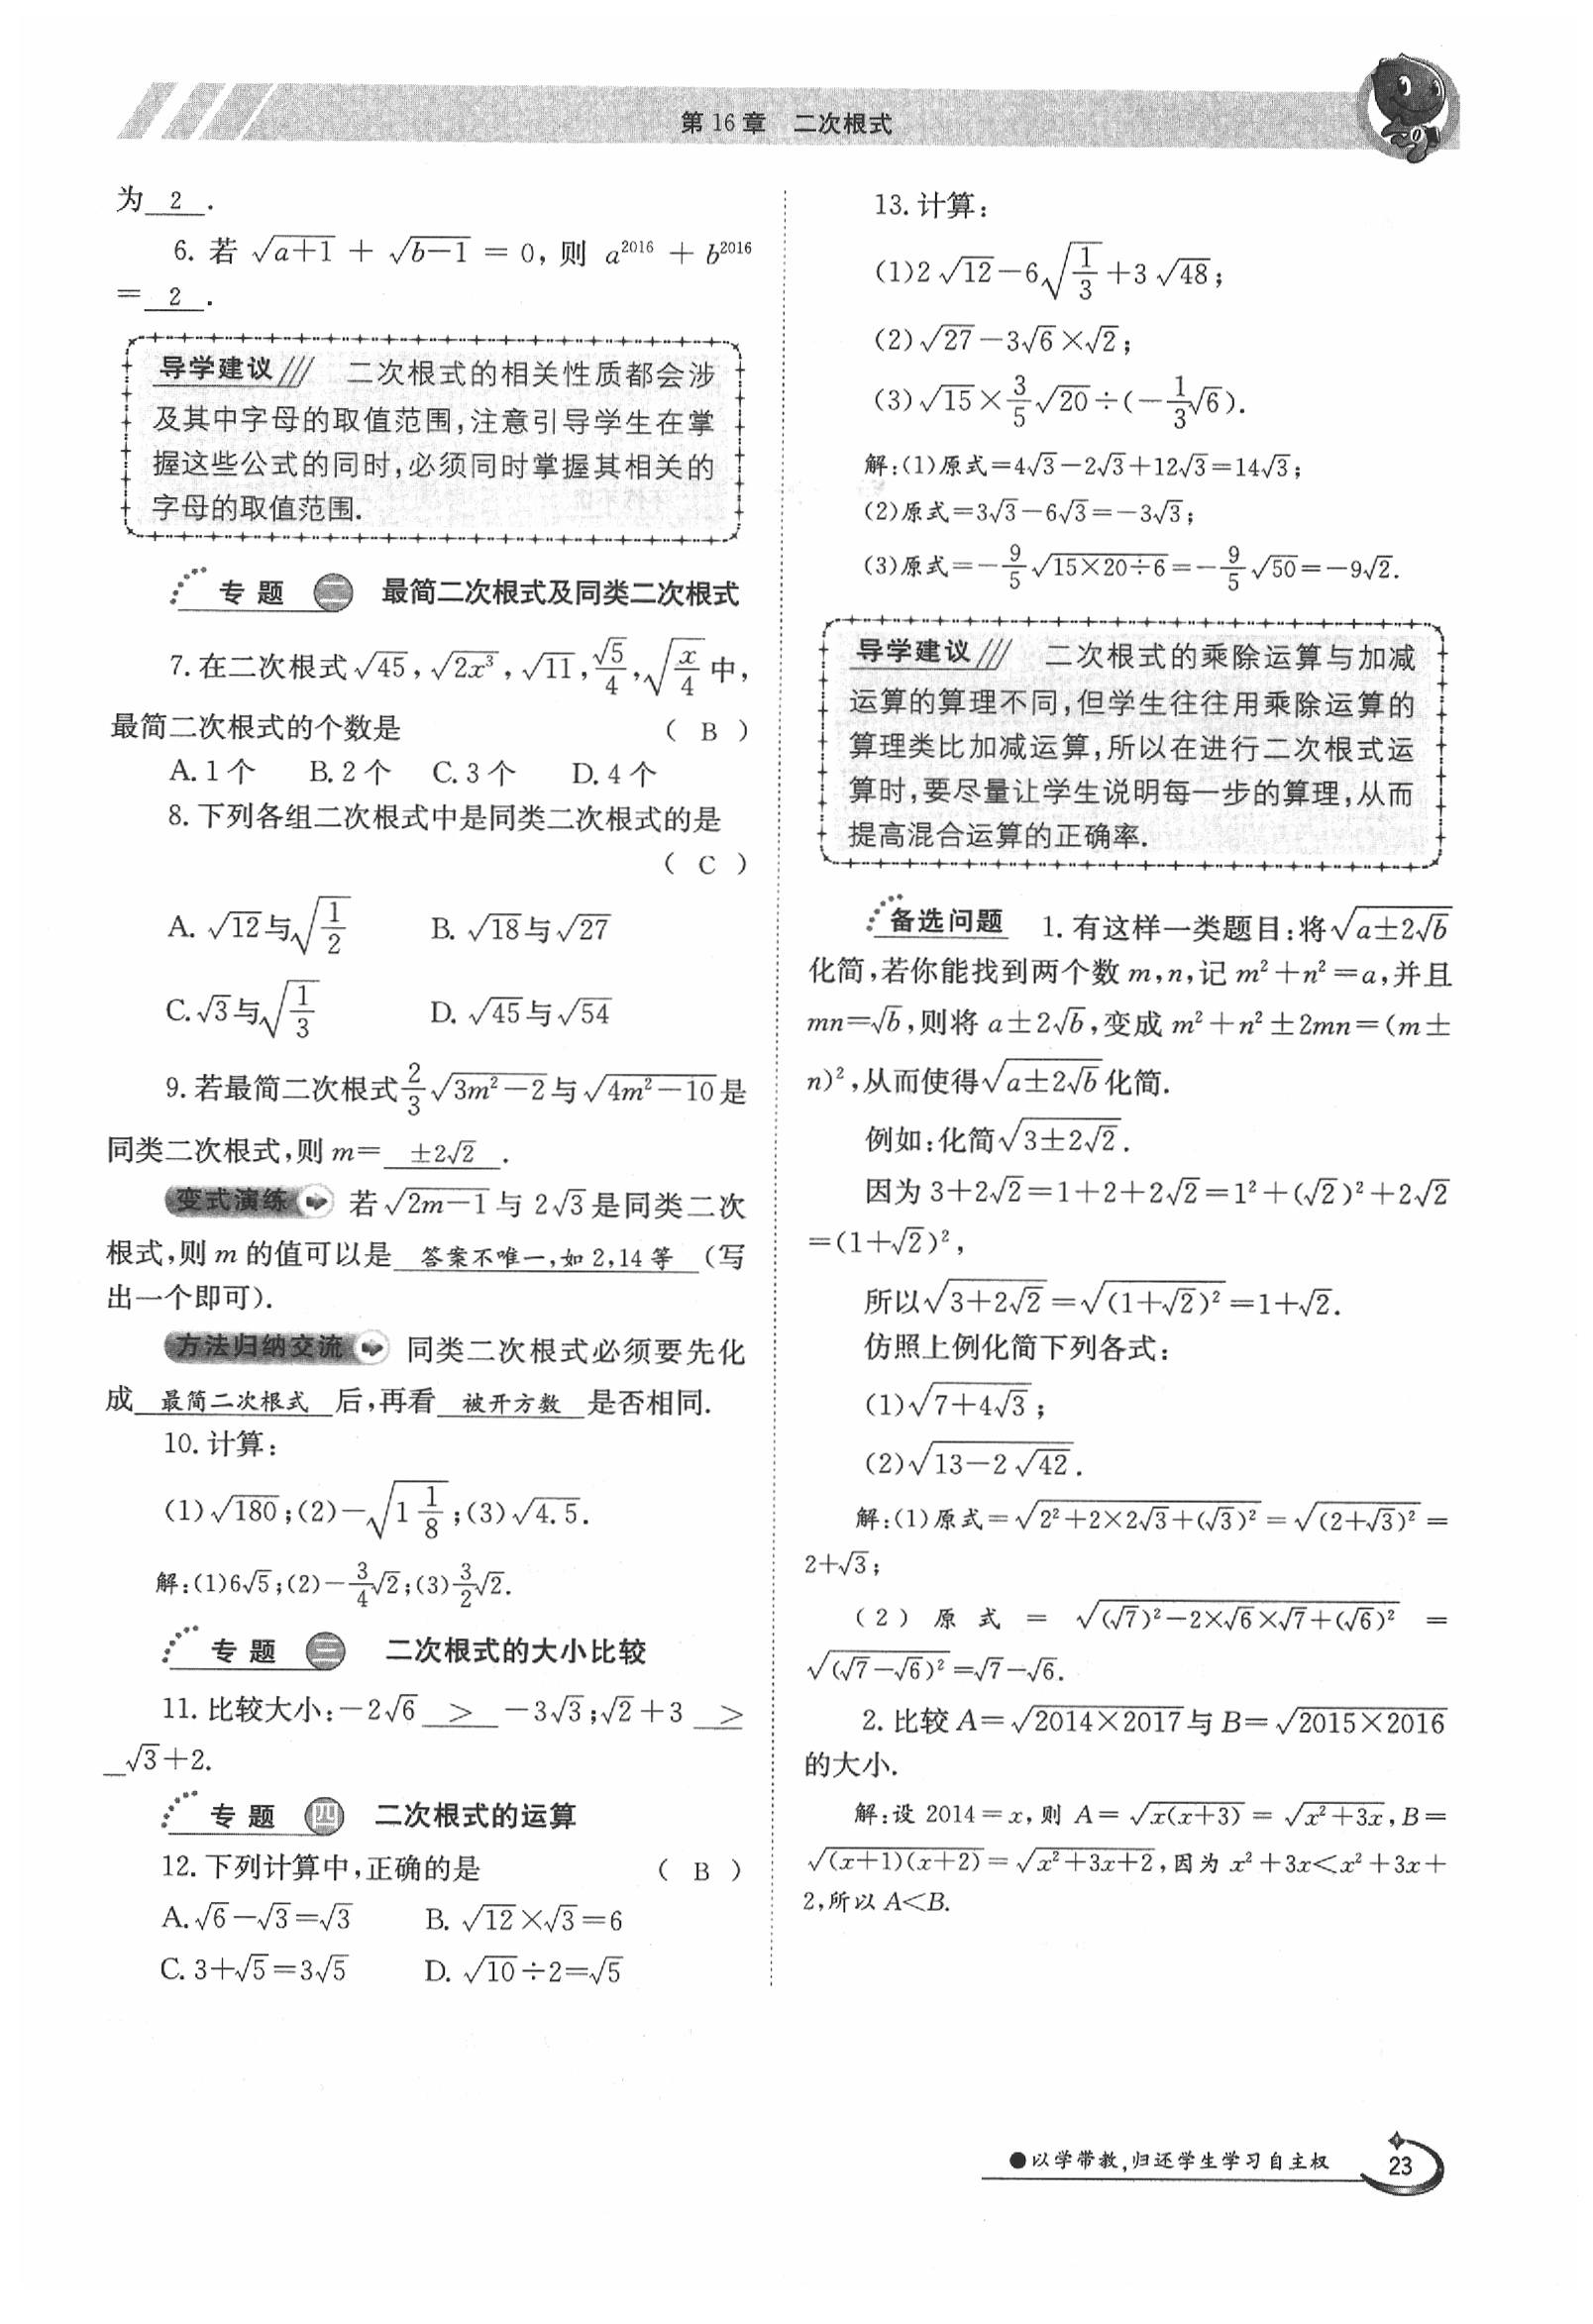 第16章 二次根式
为 2 .
6. 若 √(a+1) + √(b−1) = 0, 则 a²⁰¹⁶ + b²⁰¹⁶
= 2 .
导学建议 二次根式的相关性质都会涉
及其中字母的取值范围,注意引导学生在掌
握这些公式的同时,必须同时掌握其相关的
字母的取值范围.
专题 二 最简二次根式及同类二次根式
7. 在二次根式√45, √(2x³), √11, √5/4, √(x/4)中,
最简二次根式的个数是 ( B )
A. 1个 B. 2个 C. 3个 D. 4个
8. 下列各组二次根式中是同类二次根式的是
( C )
A. √12与√(1/2) B. √18与√27
C. √3与√(1/3) D. √45与√54
9. 若最简二次根式2/3√(3m²−2)与√(4m²−10)是
同类二次根式,则 m= ±2√2 .
变式演练 若√(2m−1)与 2√3是同类二次
根式,则 m 的值可以是 答案不唯一,如2,14等 (写
出一个即可).
方法归纳交流 同类二次根式必须要先化
成 最简二次根式 后,再看 被开方数 是否相同.
10. 计算:
(1)√180;(2)−√(1 1/8);(3)√4.5.
解:(1)6√5;(2)−3/4√2;(3)3/2√2.
专题 三 二次根式的大小比较
11. 比较大小:−2√6 > −3√3;√2+3 >
√3+2.
专题 四 二次根式的运算
12. 下列计算中,正确的是 ( B )
A. √6−√3=√3 B. √12×√3=6
C. 3+√5=3√5 D. √10÷2=√5
13. 计算:
(1)2√12−6√(1/3)+3√48;
(2)√27−3√6×√2;
(3)√15×3/5√20÷(−1/3√6).
解:(1)原式=4√3−2√3+12√3=14√3;
(2)原式=3√3−6√3=−3√3;
(3)原式=−9/5√(15×20÷6)=−9/5√50=−9√2.
导学建议 二次根式的乘除运算与加减
运算的算理不同,但学生往往用乘除运算的
算理类比加减运算,所以在进行二次根式运
算时,要尽量让学生说明每一步的算理,从而
提高混合运算的正确率.
备选问题 1. 有这样一类题目:将√(a±2√b)
化简,若你能找到两个数 m,n,记 m²+n²=a,并且
mn=√b,则将 a±2√b,变成 m²+n²±2mn=(m±
n)²,从而使得√(a±2√b)化简.
例如:化简√(3±2√2).
因为 3+2√2=1+2+2√2=1²+(√2)²+2√2
=(1+√2)²,
所以√(3+2√2)=√((1+√2)²)=1+√2.
仿照上例化简下列各式:
(1)√(7+4√3);
(2)√(13−2√42).
解:(1)原式=√(2²+2×2√3+(√3)²)=√((2+√3)²)=
2+√3;
(2)原式=√((√7)²−2×√6×√7+(√6)²)=
√((√7−√6)²)=√7−√6.
2. 比较 A=√(2014×2017)与 B=√(2015×2016)
的大小.
解:设 2014=x,则 A=√(x(x+3))=√(x²+3x),B=
√((x+1)(x+2))=√(x²+3x+2),因为 x²+3x<x²+3x+
2,所以 A<B.
●以学带教,归还学生学习自主权
23